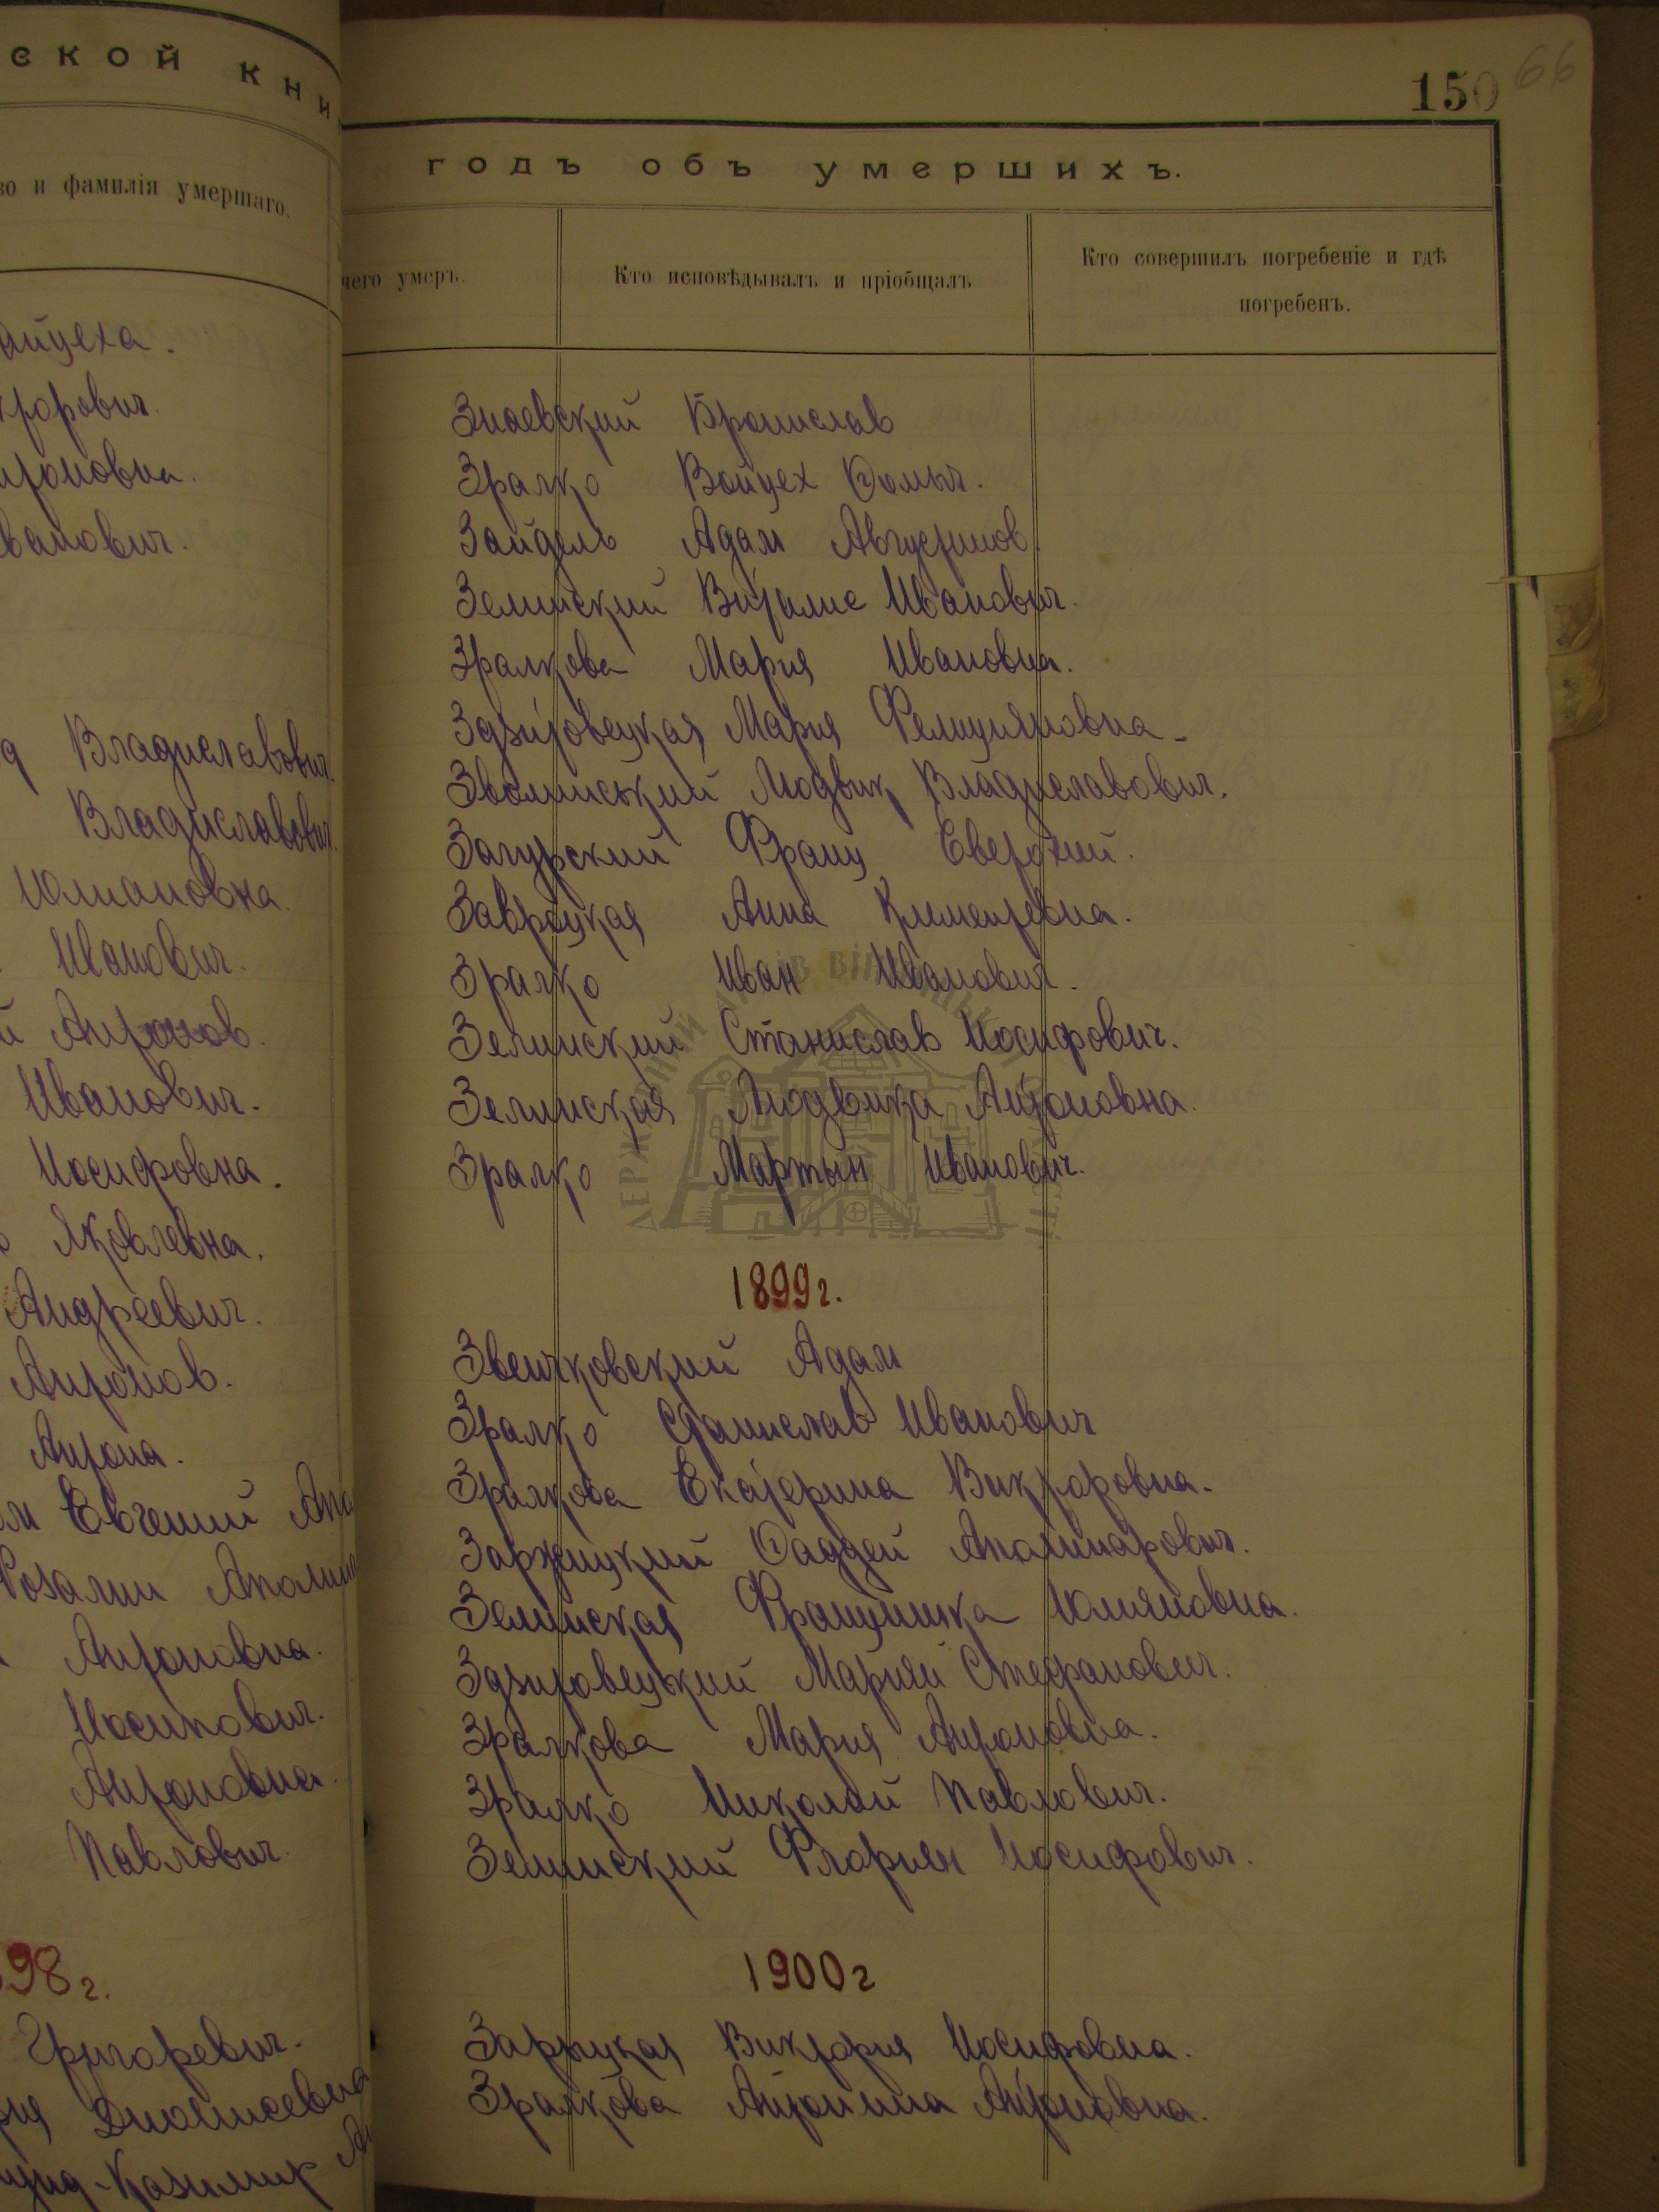 ской кни
во и фамилія умершаго.
айцеха.
кторович.
нтоновна.
Иванович.
д Владиславович.
Владиславович.
Юлиановна.
Иванович.
й Антонов.
Иванович.
Иосифовна.
Яковлевна.
Андреевич.
Антонов.
Антона.
м Евгений Апо
Розалии Аполин
Антоновна.
Иосипович.
Антоновна.
Павлович.
98 г.
Григоревич.
рия Дионисевна
унд-Казимир Ан
150 66
годъ объ умершихъ.
чего умеръ.
Кто исповѣдывалъ и пріобщалъ
Кто совершилъ погребеніе и гдѣ
погребенъ.
Знаевский Бронислав
Зралко Войцех Фомич.
Зайдель Адам Августинов.
Зелинский Виталис Иванович.
Зралкова Мария Ивановна.
Здзитовецкая Мария Фелицияновна.
Зволинський Людвик Владиславович.
Загурский Франц Евстахий.
Завроцкая Анна Климентевна.
Зралко Иван Иванович.
Зелинский Станислав Иосифович.
Зелинская Людвика Антоновна.
Зралко Мартын Иванович.
1899 г.
Звенчковский Адам
Зралко Станислав Иванович
Зралкова Екатерина Викторовна.
Заржицкий Фаддей Аполинарович.
Зелинская Францишка Юлияновна.
Здзитовецкий Мариян Стефанович.
Зралкова Мария Антоновна.
Зралко Николай Павлович.
Зелинский Флориян Иосифович.
1900 г
Зарыцкая Виктория Иосифовна.
Зралкова Антонина Антоновна.